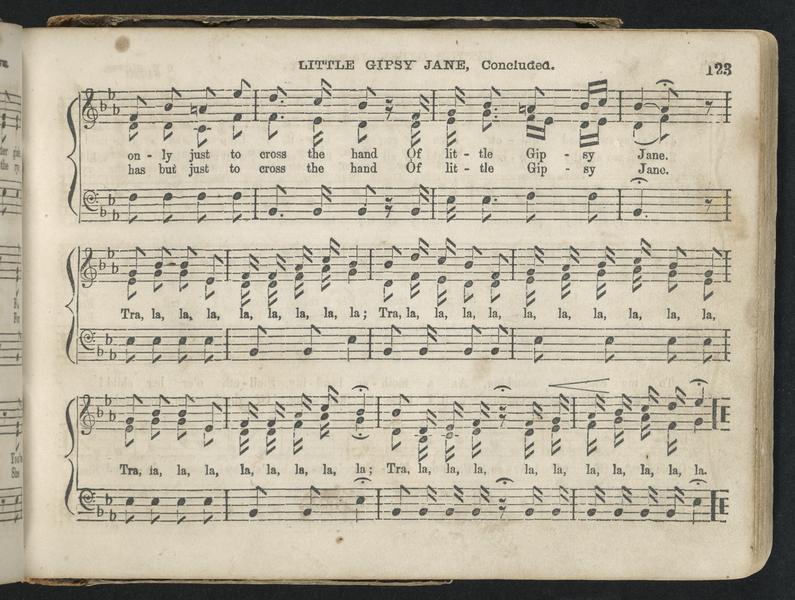 LITTLE GIPSY JANE, Concluded.
123
on - ly just to cross the hand Of lit - tle Gip - sy Jane.
has but just to cross the hand Of lit - tle Gip - sy Jane.
Tra, la, la, la, la, la, la, la, la; Tra, la, la, la, la, la, la, la, la, la, la,
Tra, la, la, la, la, la, la, la, la; Tra, la, la, la, la, la, la, la, la, la, la.